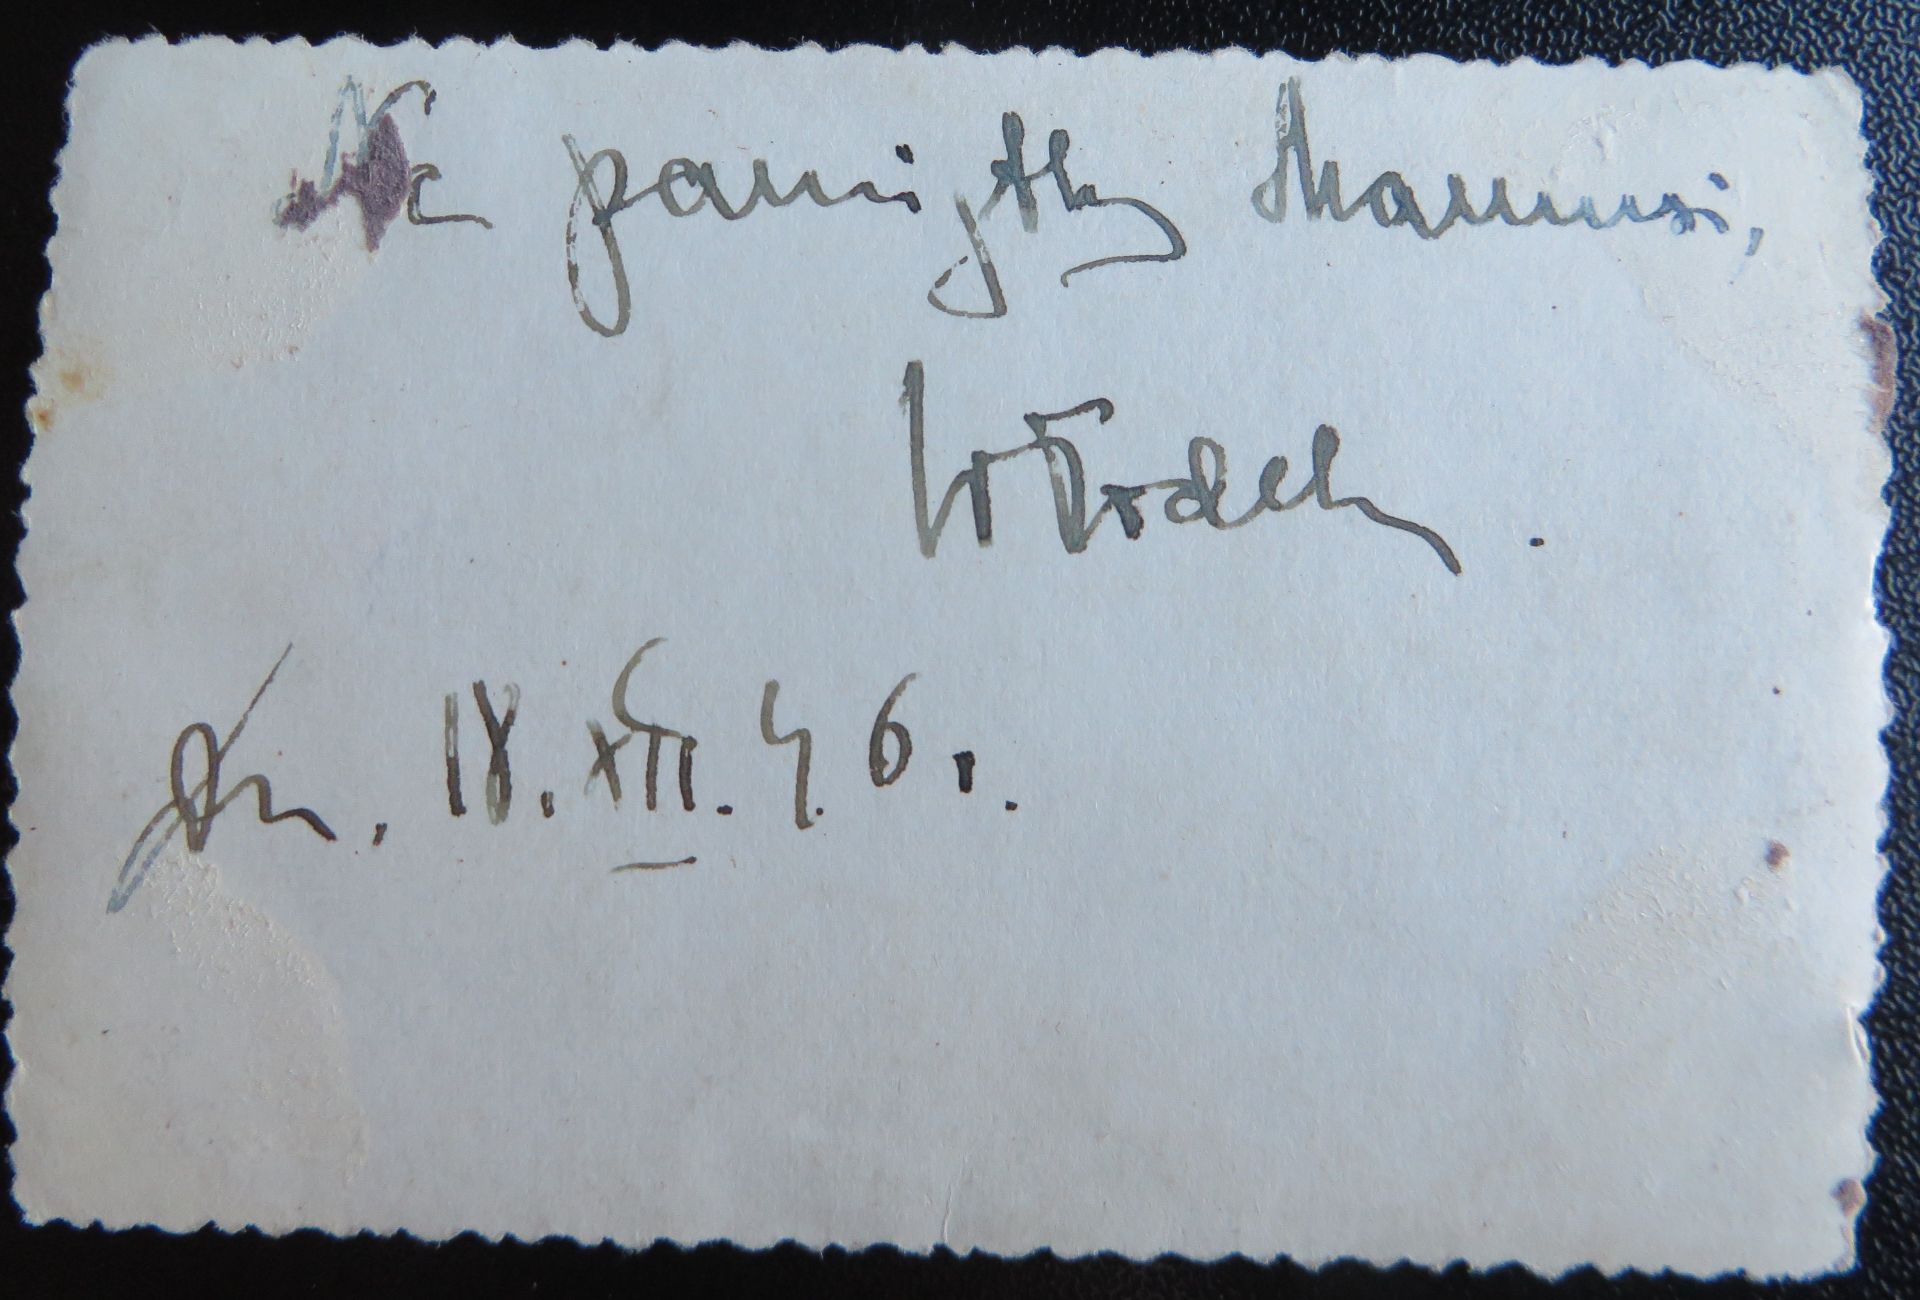 Na pamiątkę Mamusi,
Włodek.
Dn. 18. XII. 46 r.